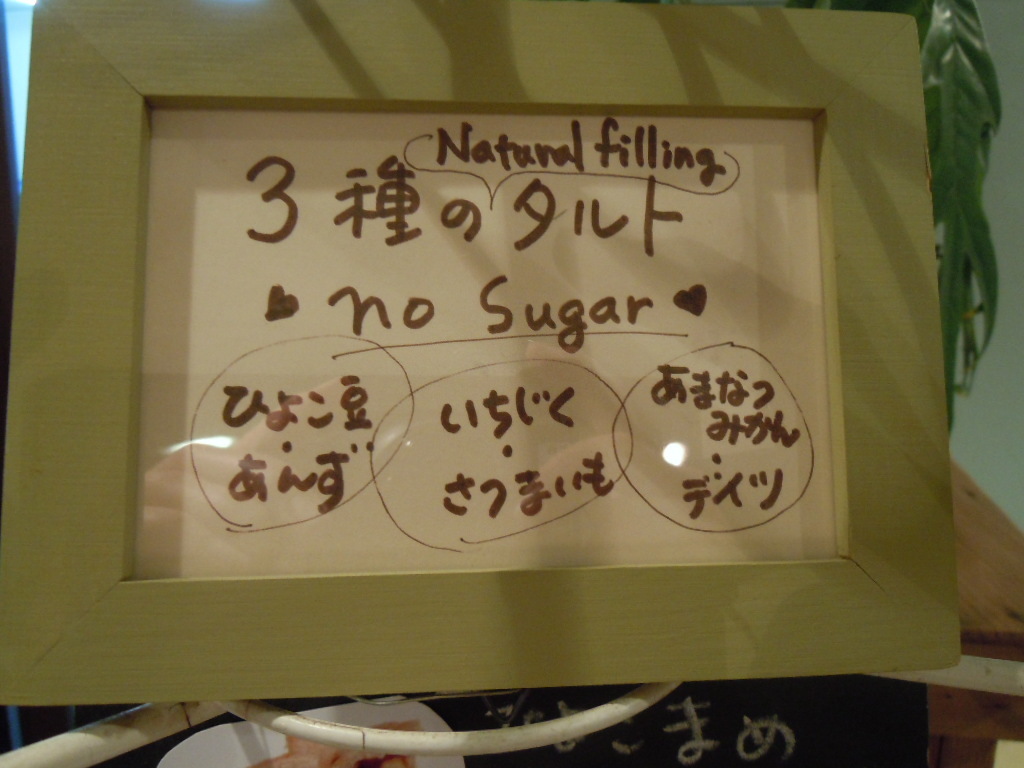 Natural filling
3種のタルト
no Sugar
ひよこ豆
・
あんず
いちじく
・
さつまいも
あまなつ
みかん
・
デイツ
ひよこまめ